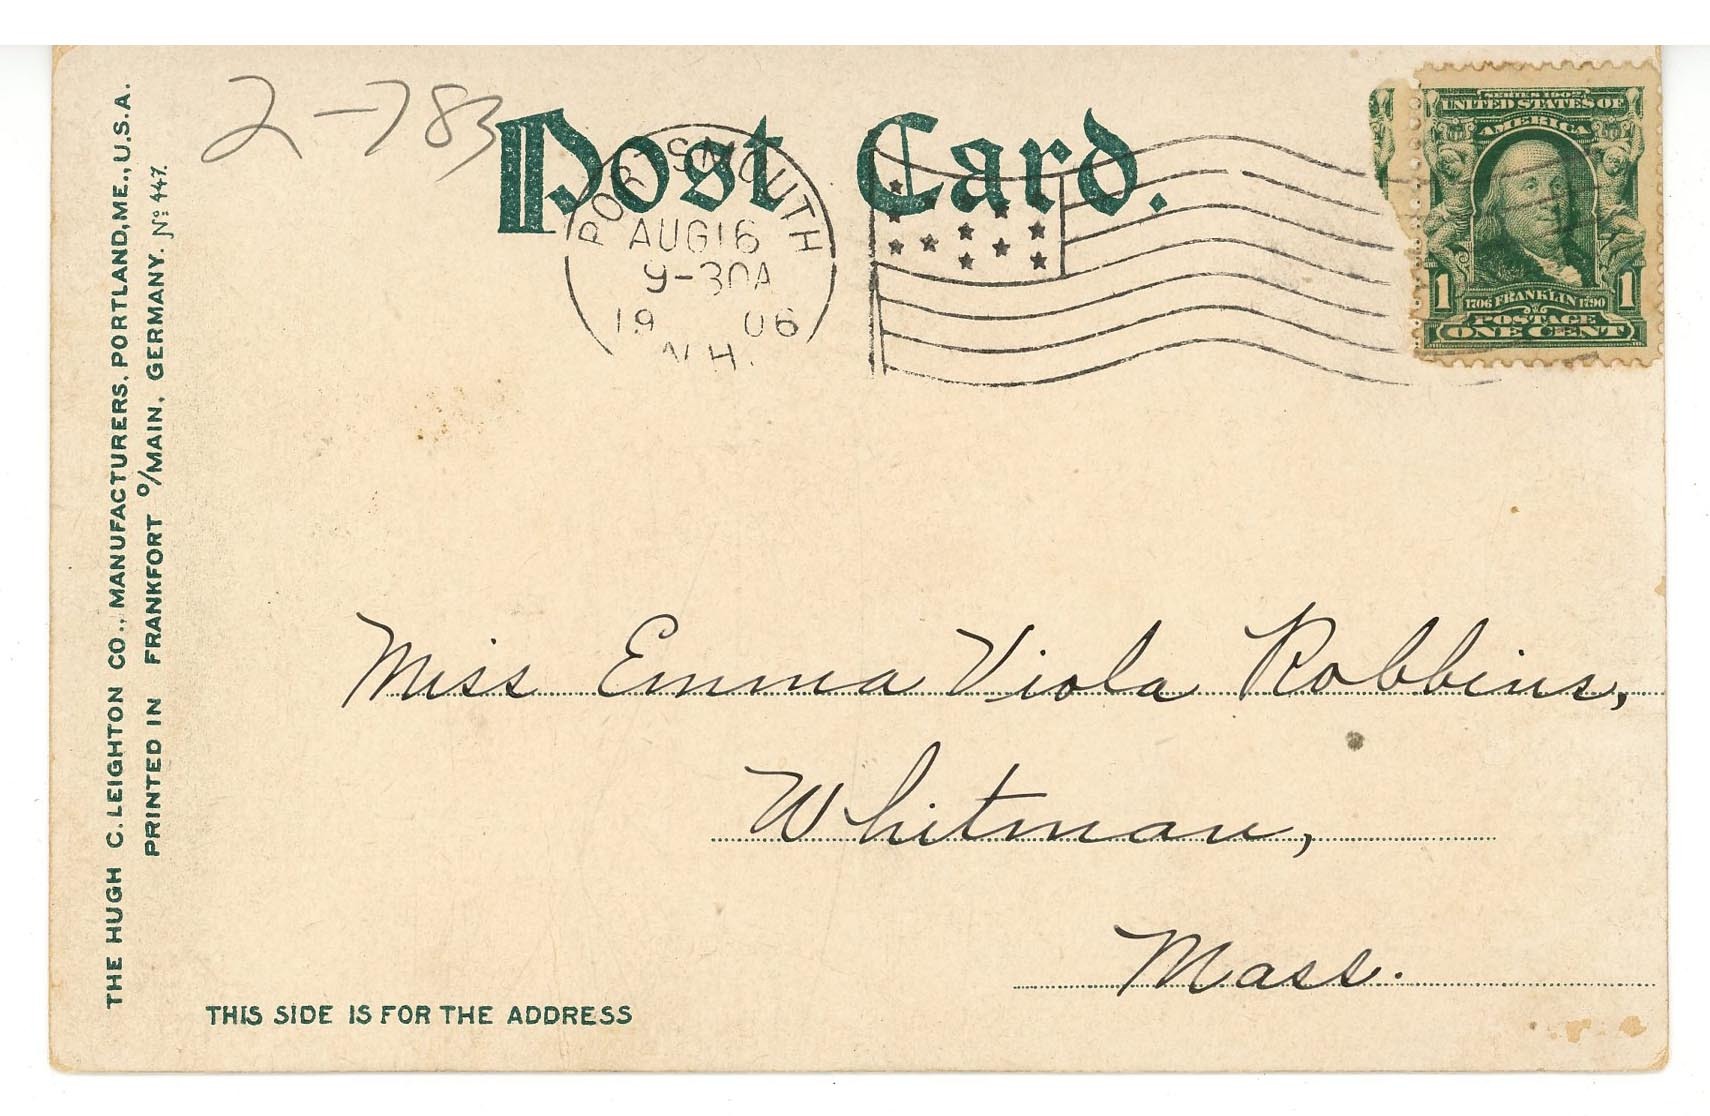 2-783
Post Card.
PORTSMOUTH
AUG 16
9-30A
1906
N.H.
SERIES 1902
UNITED STATES OF
AMERICA
1 1706 FRANKLIN 1790 1
POSTAGE
ONE CENT
THE HUGH C. LEIGHTON CO., MANUFACTURERS, PORTLAND, ME., U.S.A.
PRINTED IN FRANKFORT o/MAIN, GERMANY. No 447.
Miss Emma Viola Robbins,
Whitman,
Mass.
THIS SIDE IS FOR THE ADDRESS